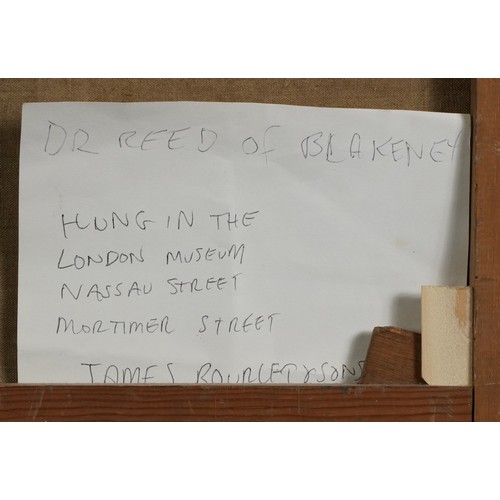 DR REED OF BLAKENEY
HUNG IN THE
LONDON MUSEUM
NASSAU STREET
MORTIMER STREET
JAMES BOURLET & SONS